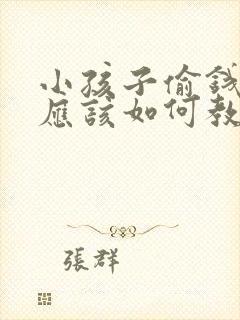 小孩子偷錢
應該如何教
張群